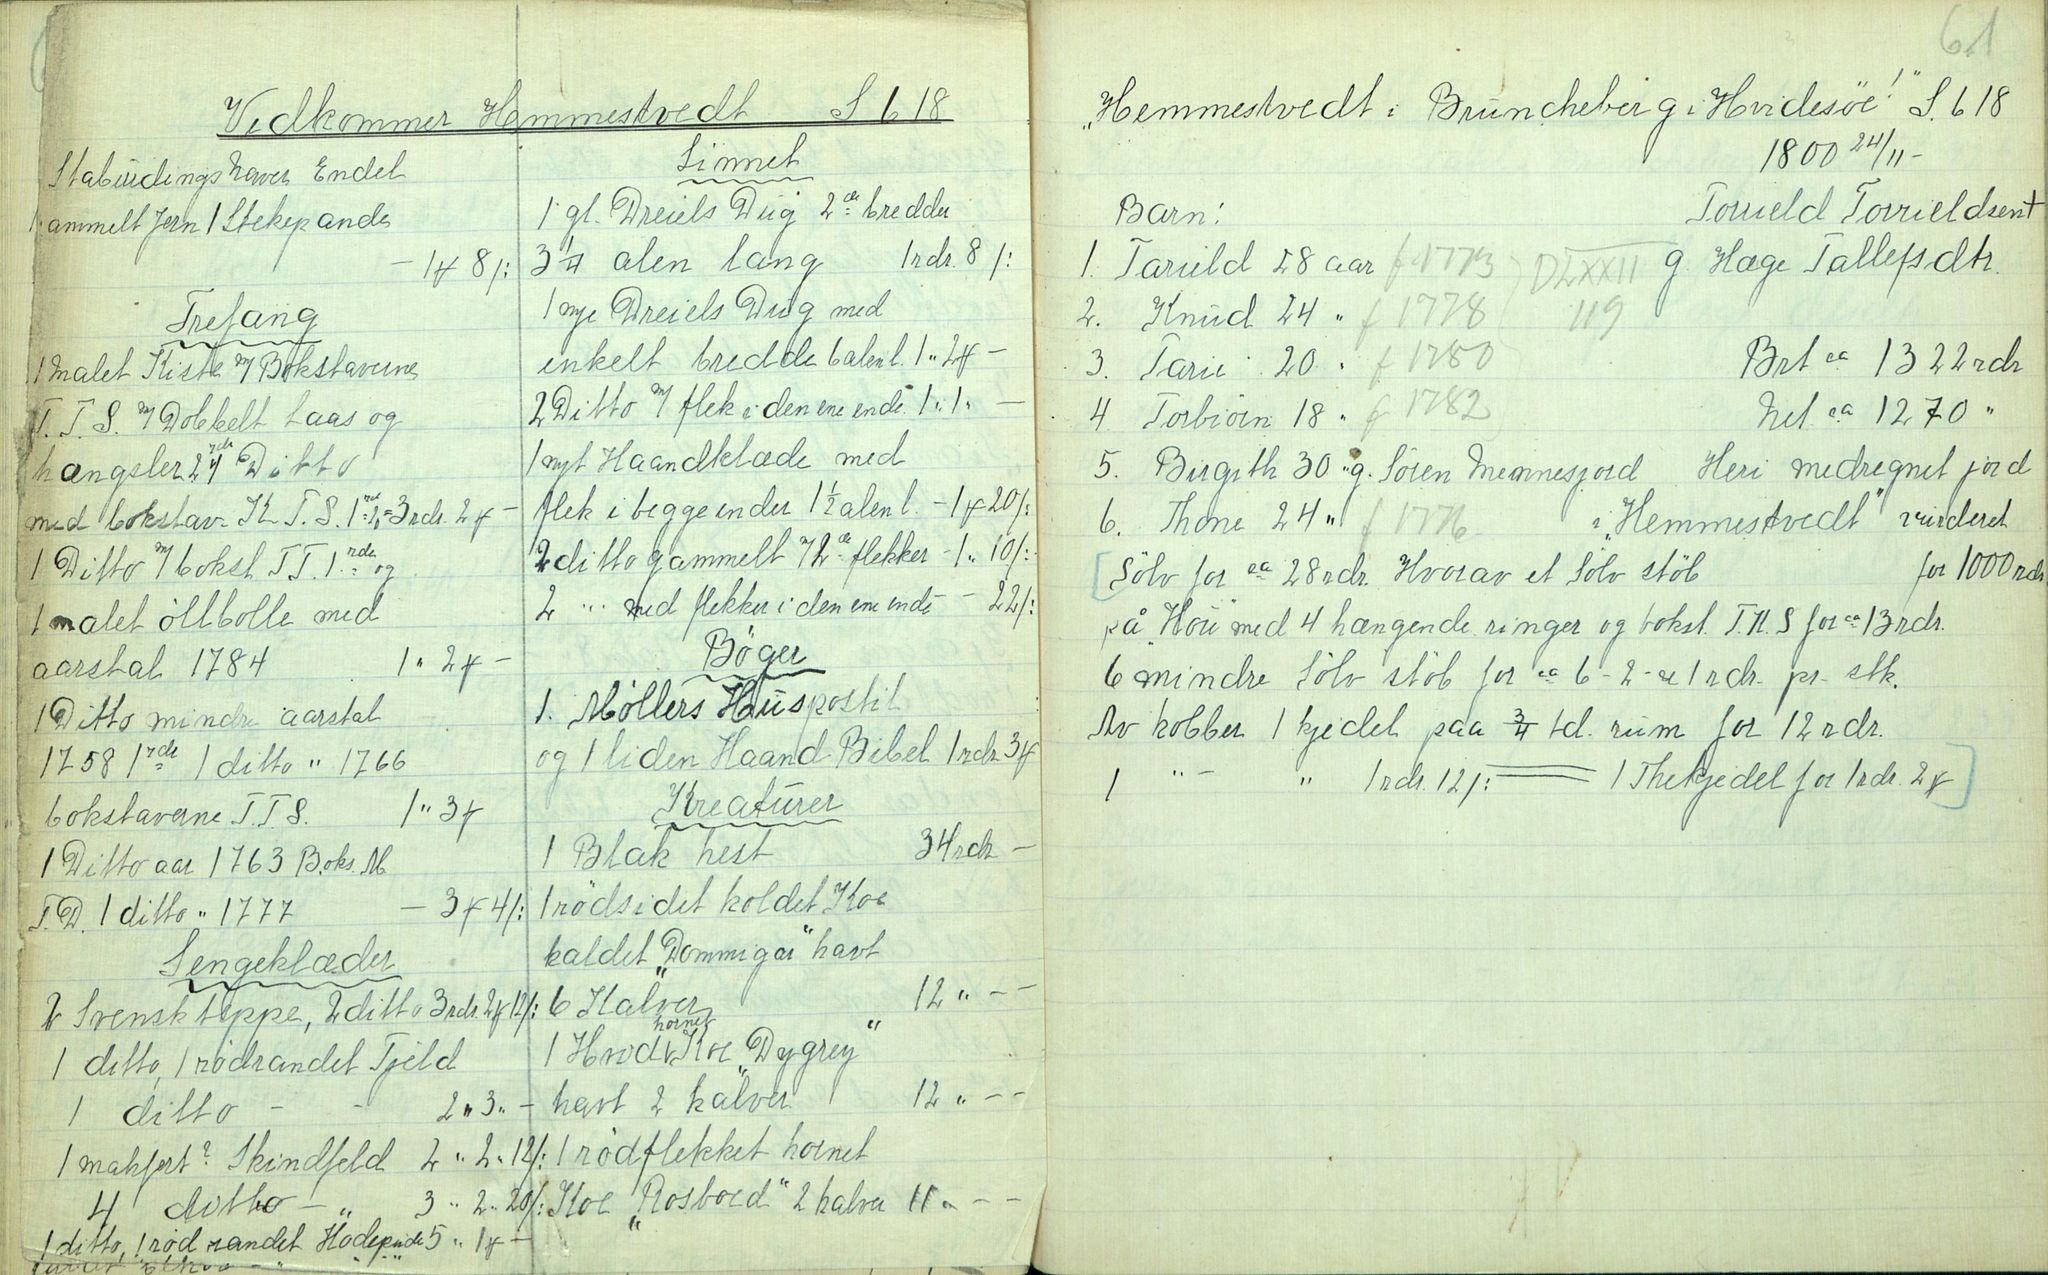 Vedkommer Hemmestvedt S 618
Stabuidings haver Endel
ammelt Jern 1 Stekepande
- 1 # 8 /:
Trefang
1 Malet Kiste m/ Bokstaverne
T. T. S. m/ Dobbelt Laas og
hængsler 2 rdr Ditto
med bokstav. K T. S. 3 rdr. 2 # -
1 Ditto m/ bokst T T. 1 rdr og
1 malet öllbolle med
aarstal 1784 1 " 2 # -
1 Ditto mindre aarstal
1758 1 rdr 1 ditto " 1766
bokstaverne T. T. S. 1 " 3 #
1 Ditto aar 1763 Boks. M
T. D. 1 ditto " 1777 - 3 # 4 /:
Sengeklæder
2 Svenskteppe, 2 ditto 3 rdr. 2 # 12 /:
1 ditto, 1 rödrandet Tjeld
1 ditto - - 2 " 3 " -
1 makfert? Skindfeld 2 " 2 " 12 /:
4 ditto - " 3 " 2 " 20 /:
1 ditto, 1 röd randet Hodepude 5 " 1 # -
Linnet
1 gl. Dreiels Dug 2de bredder
3 1/4 alen lang 1 rdr. 8 /:
1 nye Dreiels Dug med
enkelt bredde 6 alen l. 1 " 2 # -
2 Ditto m/ flek i den ene ende. 1 " 1 " -
1 nyt Haandklæde med
flek i begge ender 1 1/2 alen l. - 1 # 20 /:
2 ditto gammelt m/ 2de flekker - 1 " 10 /:
2 " med flekker i den ene ende - 22 /:
Böger
1. Möllers Huspostil
og 1 liden Haand Bibel 1 rdr. 3 #
Kreaturer
1 Blak hest 34 rdr -
1 rödsidet koldet Koe
kaldet "Dommigaas" havt
6 Kalver 12 " - -
1 Hvid hornet Koe "Dygrey"
havt 2 kalver 12 " - -
1 rödflekket hornet
Koe "Rosboed" 2 kalver 11 " - -
61
"Hemmestvedt i Bruncheberg i Hvidesöe!" S. 618
1800 24/11 -
Torrield Torrieldsen +
g. Hæge Tallefsdtr.
Barn:
1. Tarield 28 aar f 1773 DLXXII
2. Knud 24 " f 1778 119
3. Tarie 20 " f 1780 Brt ca 1322 rdr
4 Torbiörn 18 " f 1782 Net ca 1270 "
5. Birgith 30 " g. Sören Mennesjord Heri medregnet jord
6. Thone 24 " f 1776 i "Hemmestvedt" vurderet
for 1000 rdr.
[Sölv for ca 28 rdr. Hvorav et Sölv stöb
på "Hou" med 4 hængende ringer og bokst. T. K. S for ca 13 rdr.
6 mindre Sölv stöb for ca 6 - 2 - a 1 rdr. pr. stk.
Av kobber 1 kjedel paa 3/4 td. rum for 12 rdr.
1 " - " 1 rdr. 12 /: 1 Thekjedel for 1 rdr. 2 #]